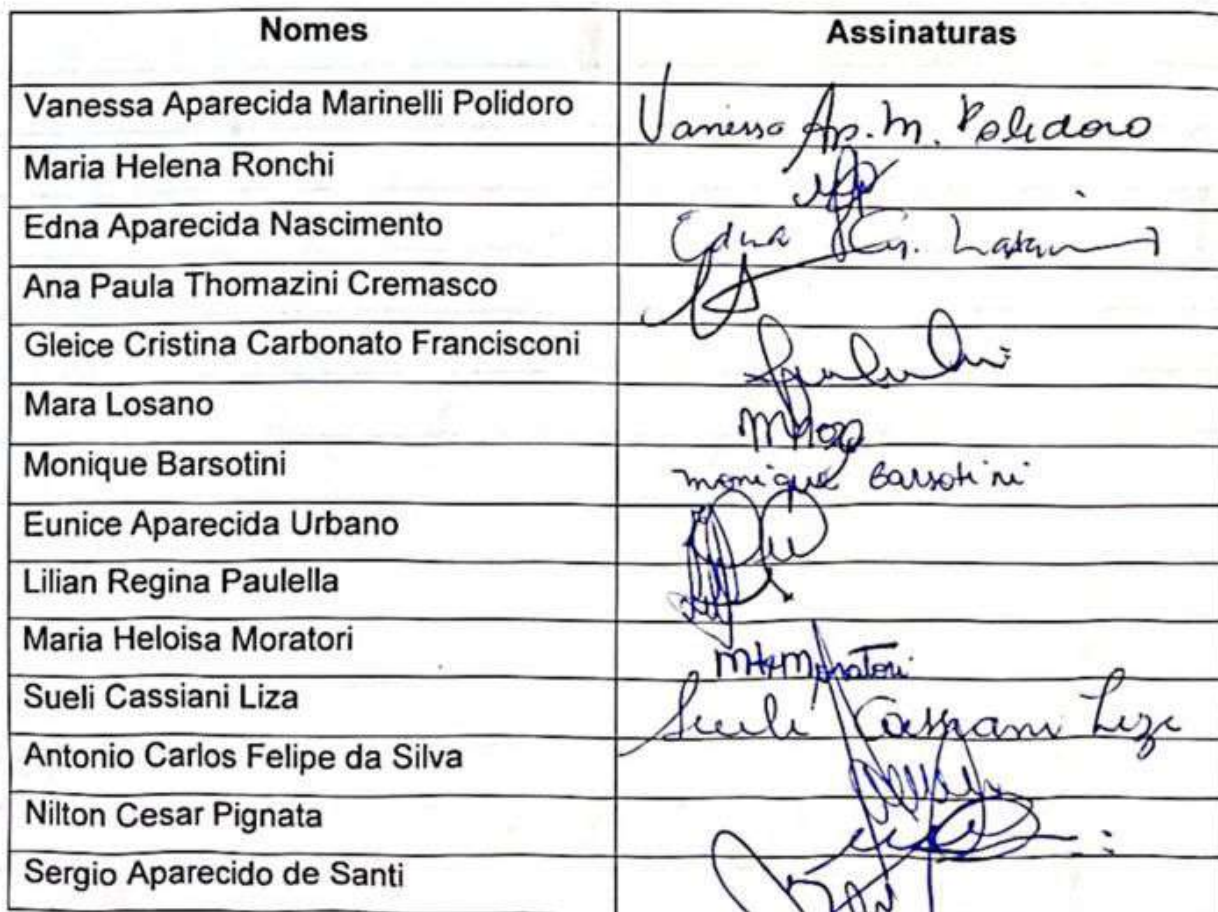 Nomes Assinaturas
Vanessa Aparecida Marinelli Polidoro Vanessa Ap. M. Polidoro
Maria Helena Ronchi
Edna Aparecida Nascimento Edna
Ana Paula Thomazini Cremasco
Gleice Cristina Carbonato Francisconi
Mara Losano
Monique Barsotini monique Barsotini
Eunice Aparecida Urbano
Lilian Regina Paulella
Maria Heloisa Moratori MHMoratori
Sueli Cassiani Liza Sueli Cassiani Liza
Antonio Carlos Felipe da Silva
Nilton Cesar Pignata
Sergio Aparecido de Santi